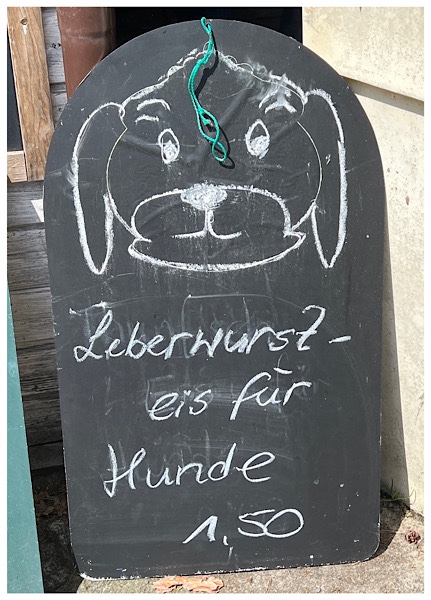 Leberwurst-
eis für
Hunde
1,50